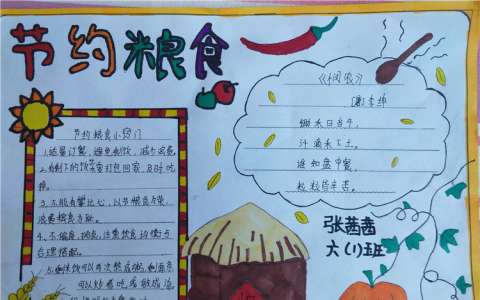 节约粮食
节约粮食小窍门
1.适量订餐,避免剩饭,减少浪费。
2.如剩下的饭菜要打包回家,及时吃
掉。
3.不能有攀比心,以节粮食为荣,
浪费粮食为耻。
4.不偏食,挑食,注意饮食均衡与
合理搭配。
5.剩饭可以再次热
可以炒着吃
《悯农》
李绅
锄禾日当午,
汗滴禾下土。
谁知盘中餐,
粒粒皆辛苦。
张茜茜
六(1)班